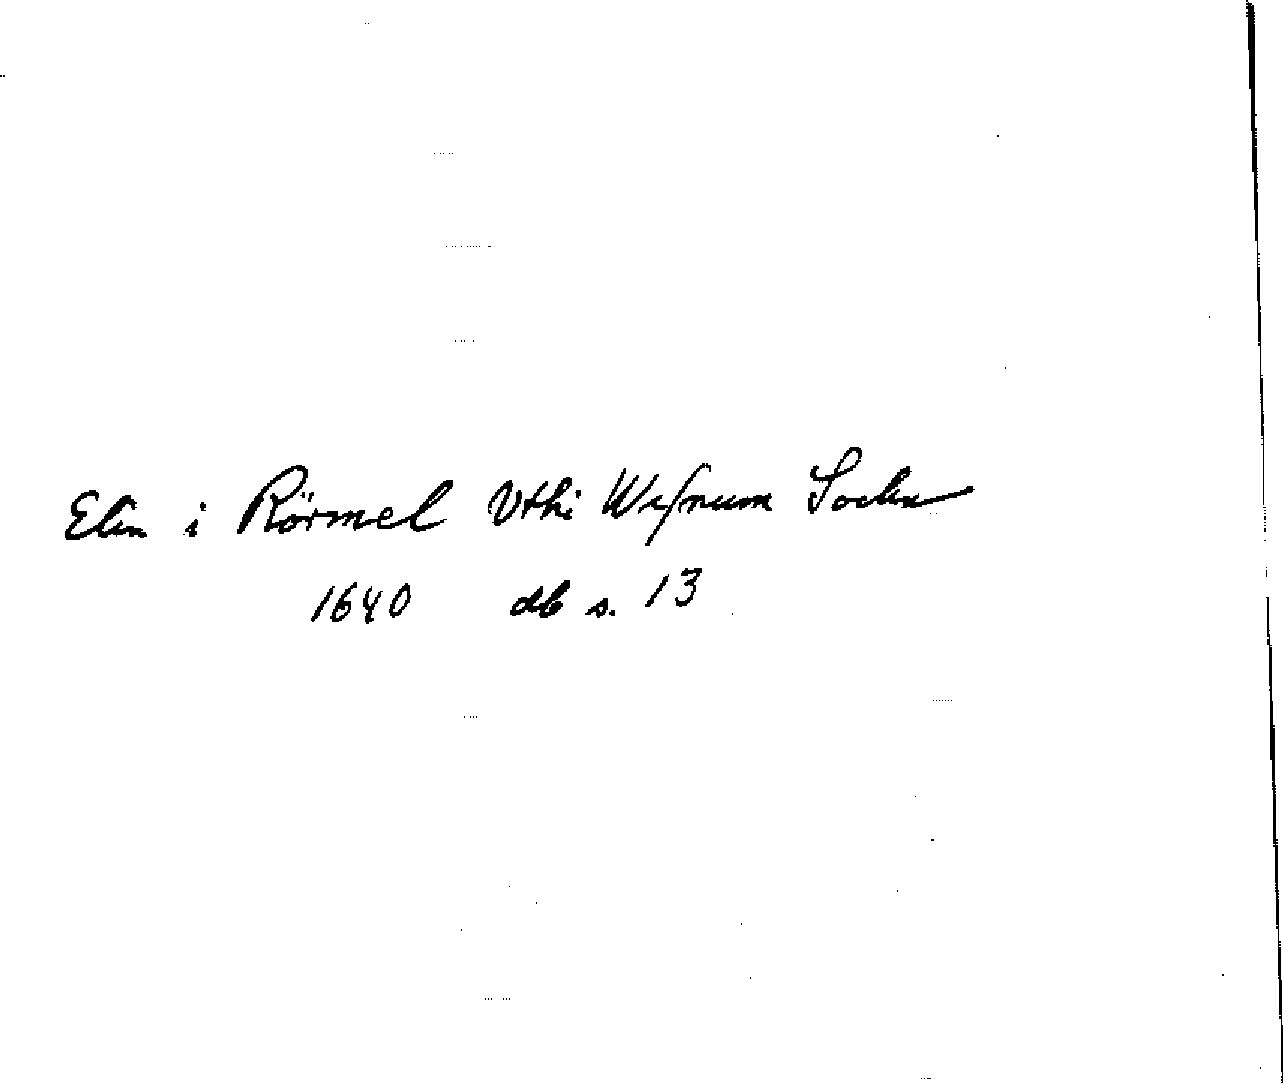 Elin i Rörmel Vthi Wesnum Sockn
1640 db s. 13